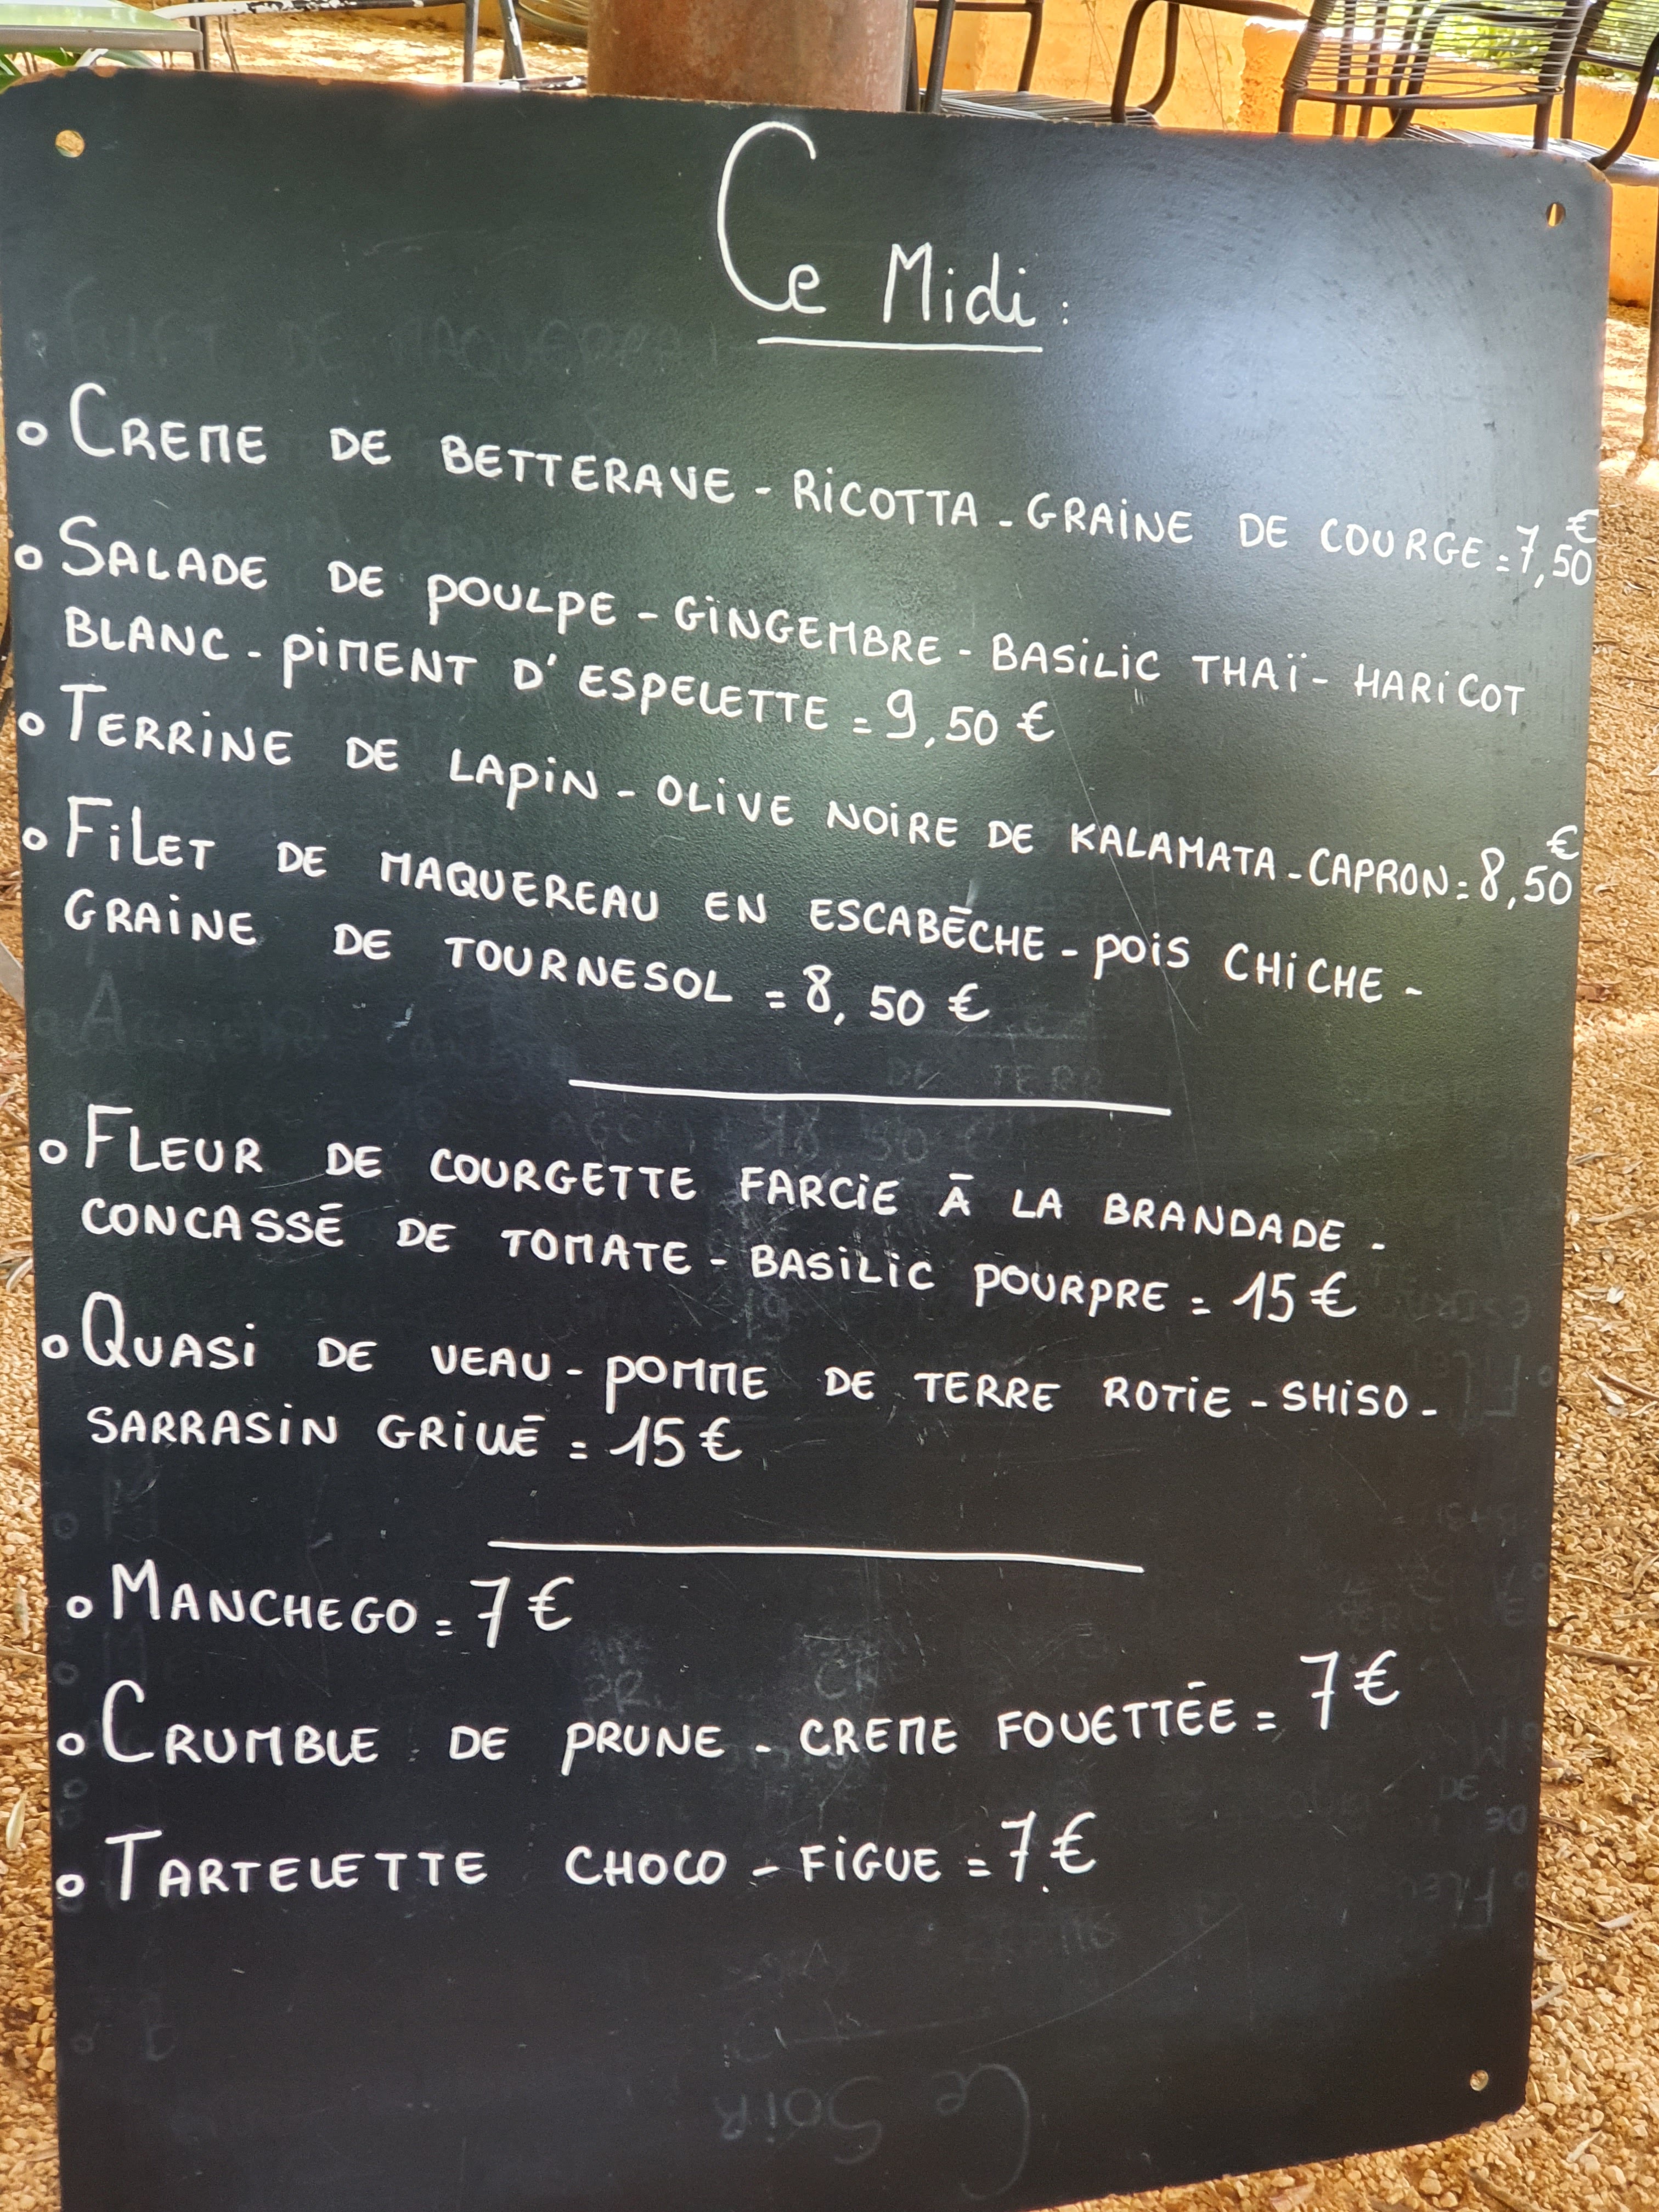 Ce Midi :
o CREME DE BETTERAVE - RICOTTA - GRAINE DE COURGE = 7,50 €
o SALADE DE POULPE - GINGEMBRE - BASILIC THAÏ - HARICOT
BLANC - PIMENT D'ESPELETTE = 9,50 €
o TERRINE DE LAPIN - OLIVE NOIRE DE KALAMATA - CAPRON = 8,50 €
o FILET DE MAQUEREAU EN ESCABĒCHE - POIS CHICHE -
GRAINE DE TOURNESOL = 8,50 €
o FLEUR DE COURGETTE FARCIE Ā LA BRANDADE -
CONCASSĒ DE TOMATE - BASILIC POURPRE = 15 €
o QUASI DE VEAU - POMME DE TERRE ROTIE - SHISO -
SARRASIN GRILLĒ = 15 €
o MANCHEGO = 7 €
o CRUMBLE DE PRUNE - CREME FOUETTĒE = 7 €
o TARTELETTE CHOCO - FIGUE = 7 €
Ce SOIR